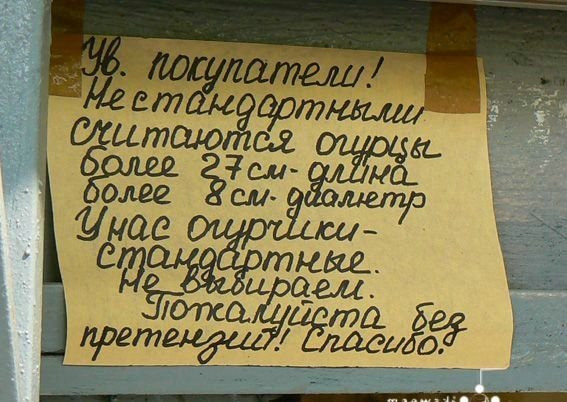 Ув. покупатели!
Нестандартными
считаются огурцы
более 27 см - длина
более 8 см - диаметр
У нас огурчики -
стандартные.
Не выбираем.
Пожалуйста без
претензий! Спасибо.